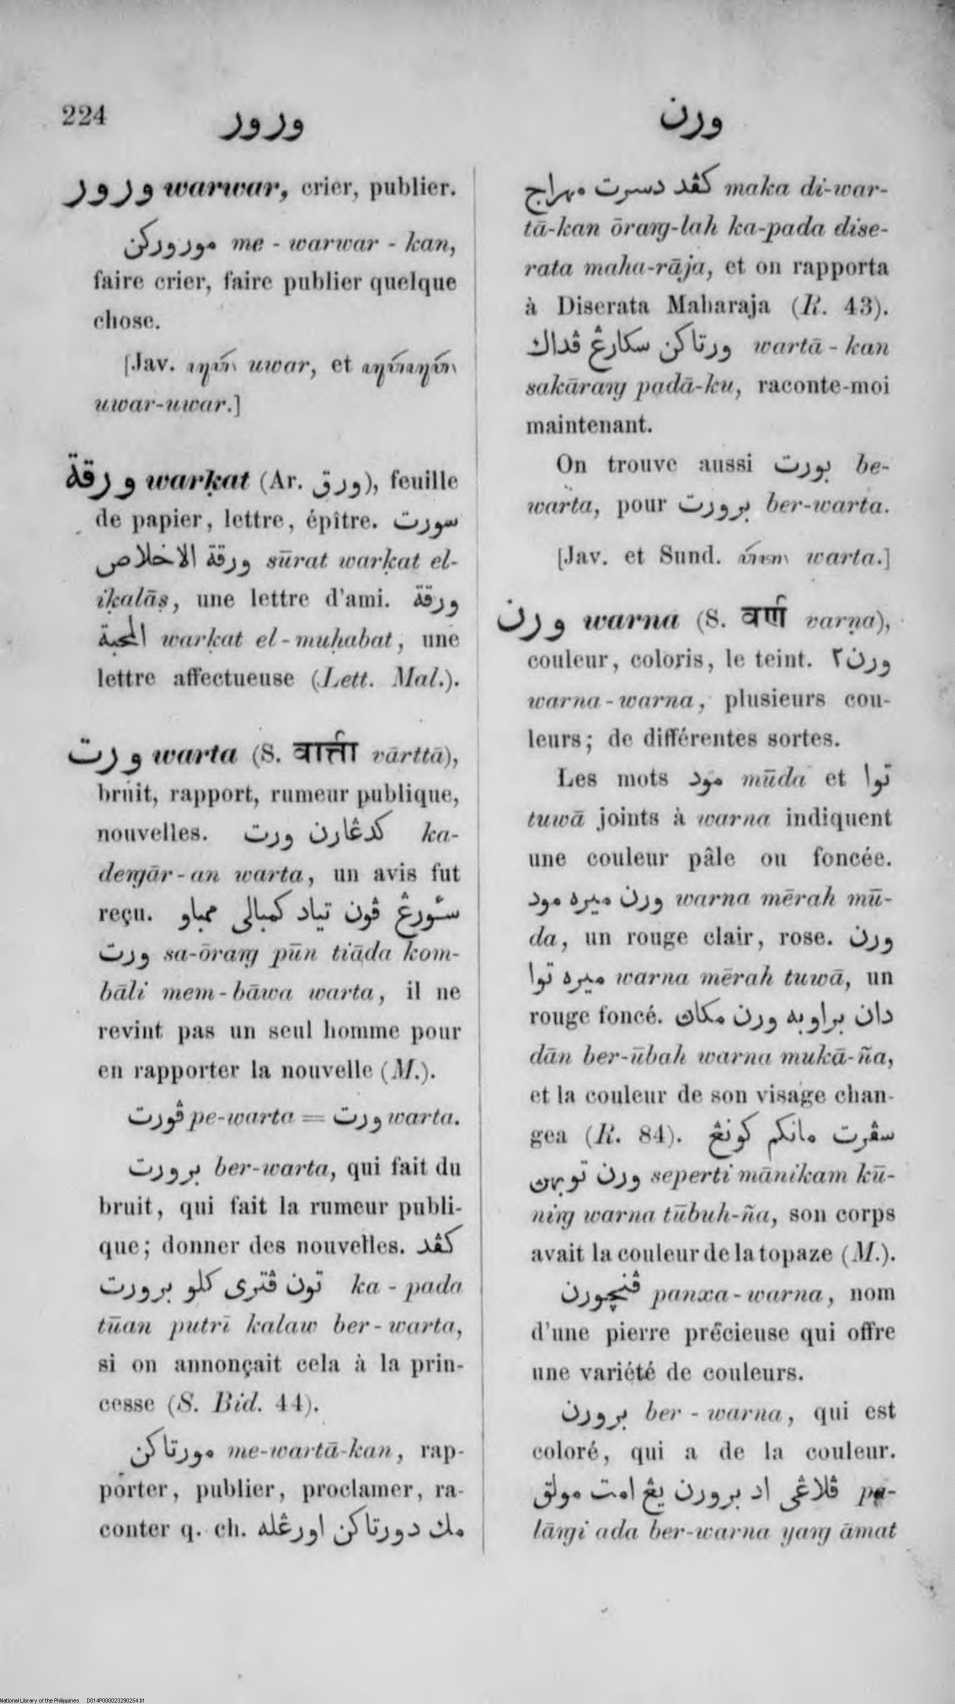 224
ورور
ورن
ورور warwar, crier, publier.
موروركن me-warwar-kan,
faire crier, faire publier quelque
chose.
[Jav. uwar, et
uwar-uwar.]
ورقة warḳat (Ar. ورق), feuille
de papier, lettre, épître. سورت
ورقة الاخلاص sūrat warḳat el-
iḳalāṣ, une lettre d'ami. ورقة
المحبة warḳat el-muḥabat, une
lettre affectueuse (Lett. Mal.).
ورت warta (S. वार्त्ता vārttā),
bruit, rapport, rumeur publique,
nouvelles. كدڠارن ورت ka-
deṅgār-an warta, un avis fut
reçu. سٔورڠ ڤون تياد كمبالى ممباو
ورت sa-ōraṅg pūn tiāda kom-
bāli mem-bāwa warta, il ne
revint pas un seul homme pour
en rapporter la nouvelle (M.).
ڤورت pe-warta = ورت warta.
برورت ber-warta, qui fait du
bruit, qui fait la rumeur publi-
que; donner des nouvelles. كڤد
تون ڤترى كلو برورت ka-pada
tūan putrī kalaw ber-warta,
si on annonçait cela à la prin-
cesse (S. Bid. 44).
مورتاكن me-wartā-kan, rap-
porter, publier, proclamer, ra-
conter q. ch. مك دورتاكن اورڠله
كڤد دسرت مهراج maka di-war-
tā-kan ōraṅg-lah ka-pada dise-
rata maha-rāja, et on rapporta
à Diserata Maharaja (R. 43).
ورتاكن سكارڠ ڤداك wartā-kan
sakāraṅg padā-ku, raconte-moi
maintenant.
On trouve aussi بورت be-
warta, pour برورت ber-warta.
[Jav. et Sund. warta.]
ورن warna (S. वर्ण varṇa),
couleur, coloris, le teint. ورن٢
warna-warna, plusieurs cou-
leurs; de différentes sortes.
Les mots مود mūda et توا
tuwā joints à warna indiquent
une couleur pâle ou foncée.
ورن ميره مود warna mērah mū-
da, un rouge clair, rose. ورن
ميره توا warna mērah tuwā, un
rouge foncé. دان براوبه ورن مكاڽ
dān ber-ūbah warna mukā-ña,
et la couleur de son visage chan-
gea (R. 84). سڤرت مانكم كونڠ
ورن توبهڽ seperti mānikam kū-
niṅg warna tūbuh-ña, son corps
avait la couleur de la topaze (M.).
ڤنچورن panxa-warna, nom
d'une pierre précieuse qui offre
une variété de couleurs.
برورن ber-warna, qui est
coloré, qui a de la couleur.
ڤلاڠى اد برورن يڠ امت مولق pe-
lāṅgi ada ber-warna yaṅg āmat
National Library of the Philippines